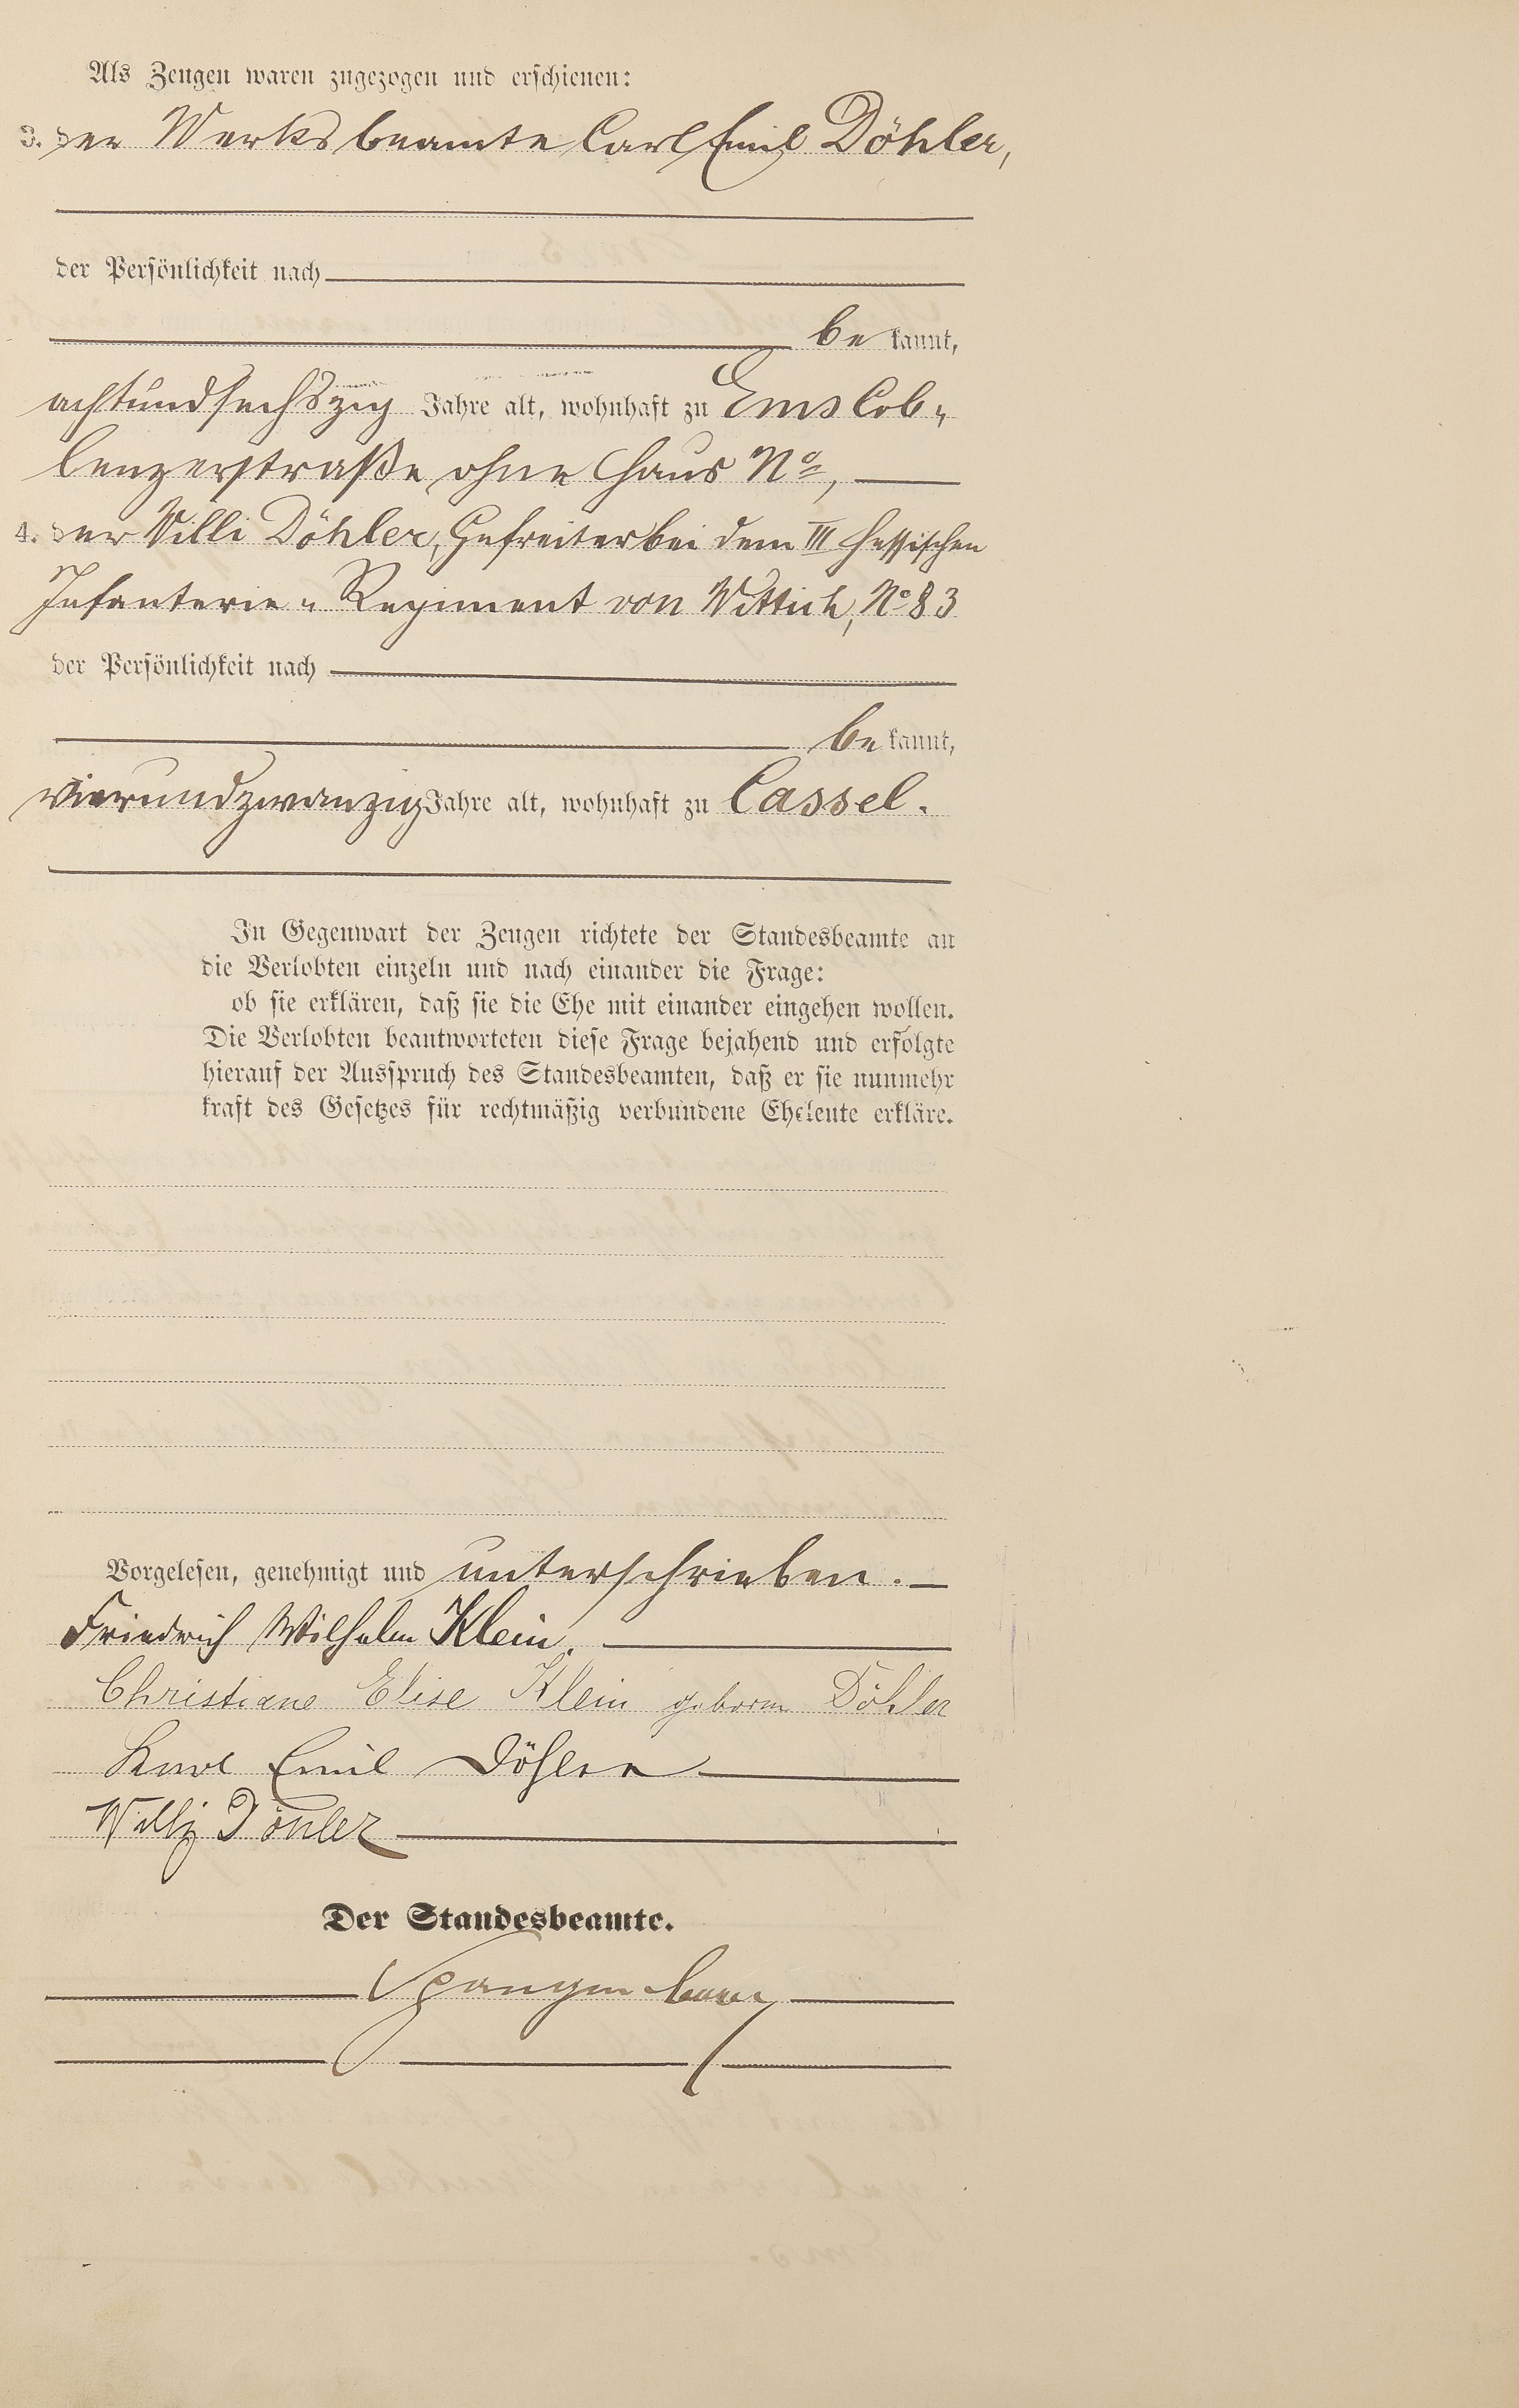 Als Zeugen waren zugezogen und erschienen:
3. der Werksbeamte Carl Emil Döhler,
der Persönlichkeit nach
be kannt,
achtundsechszig Jahre alt, wohnhaft zu Ems Cob-
lenzerstraße ohne Haus No,
4. der Willi Döhler, Gefreiter bei dem III Hessischen
Infanterie-Regiment von Wittich, No 83
der Persönlichkeit nach
be kannt,
vierundzwanzig Jahre alt, wohnhaft zu Cassel.
In Gegenwart der Zeugen richtete der Standesbeamte an
die Verlobten einzeln und nach einander die Frage:
ob sie erklären, daß sie die Ehe mit einander eingehen wollen.
Die Verlobten beantworteten diese Frage bejahend und erfolgte
hierauf der Ausspruch des Standesbeamten, daß er sie nunmehr
kraft des Gesetzes für rechtmäßig verbundene Eheleute erkläre.
Vorgelesen, genehmigt und unterschrieben.
Friedrich Wilhelm Klein.
Christiane Elise Klein geborne Döhler
Karl Emil Döhler
Willy Döhler
Der Standesbeamte.
Spangenberg